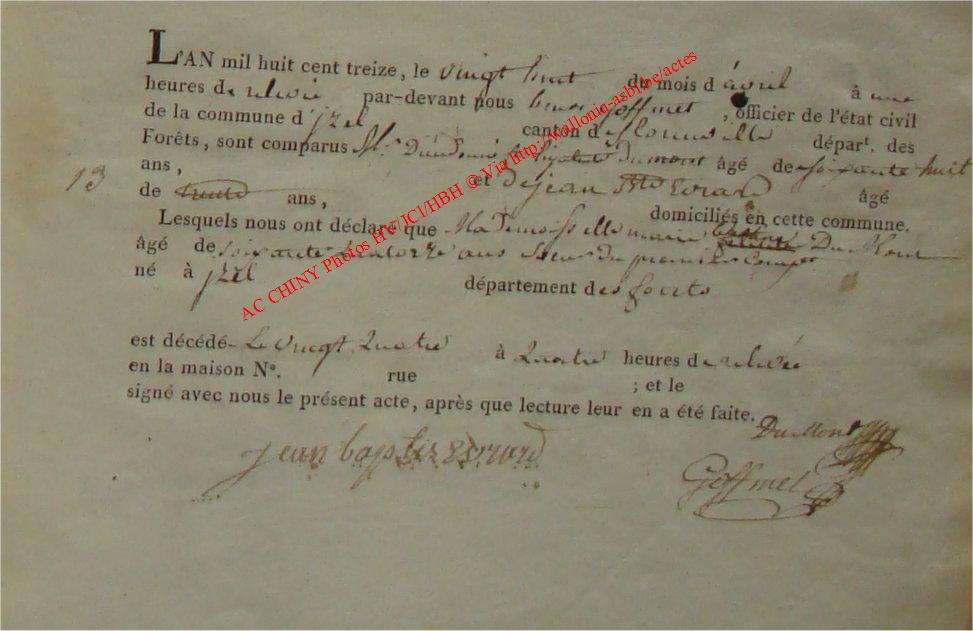 L'AN mil huit cent treize, le vingt huit du mois d'avril à une
heures de relevée par-devant nous Goffinet, officier de l'état civil
de la commune d'jzel canton de florenville départ. des
Forêts, sont comparus Mr. Dieudonné Dumont âgé de soixante huit
ans, et De jean Bte Evrard âgé
13
de trente ans, domiciliés en cette commune.
Lesquels nous ont déclaré que Mademoisselle marie Du Mont
âgé de soixante quatorze ans Sœur du premier
né à jzel département des forêts
est décédé Le vingt Quatre à Quatre heures de relevée
en la maison No. rue ; et le
signé avec nous le présent acte, après que lecture leur en a été faite.
Du Mont
jean baptiste Evrard
Goffinet
AC CHINY Photos HV/JCI/HBH © Via http://wallonia-asbl.be/actes